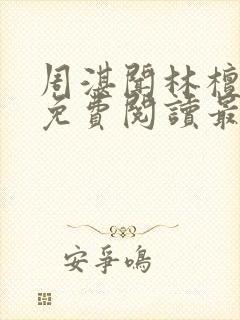 周湛聞林檀
免費閱讀最
安爭鳴